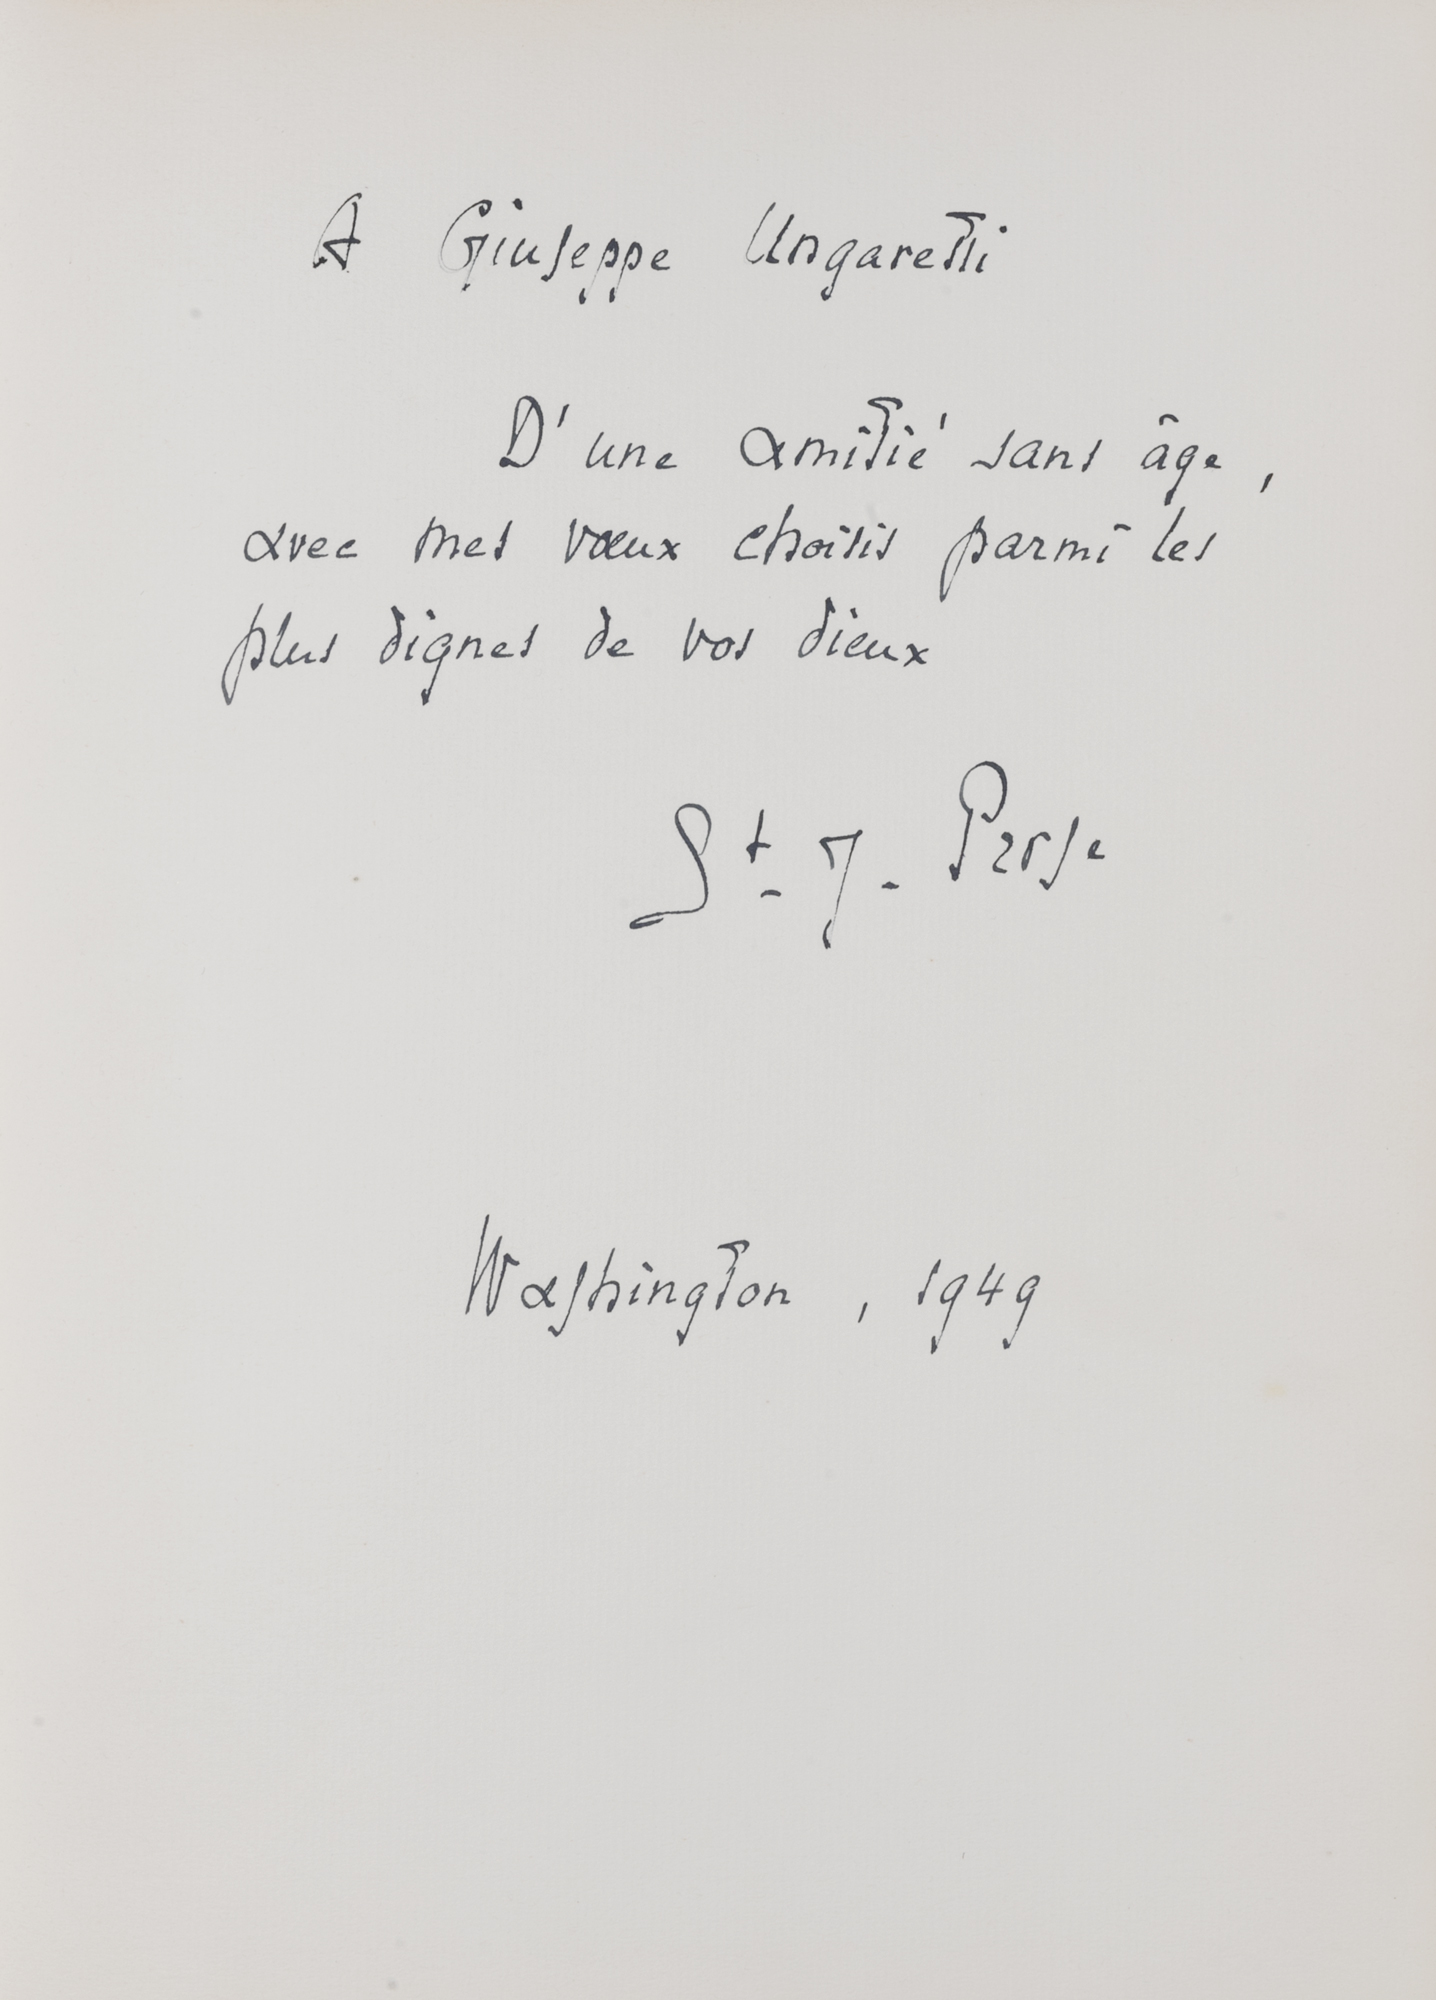 A Giuseppe Ungaretti
D'une amitié sans âge,
avec mes vœux choisis parmi les
plus dignes de vos dieux
St-J-Perse
Washington, 1949